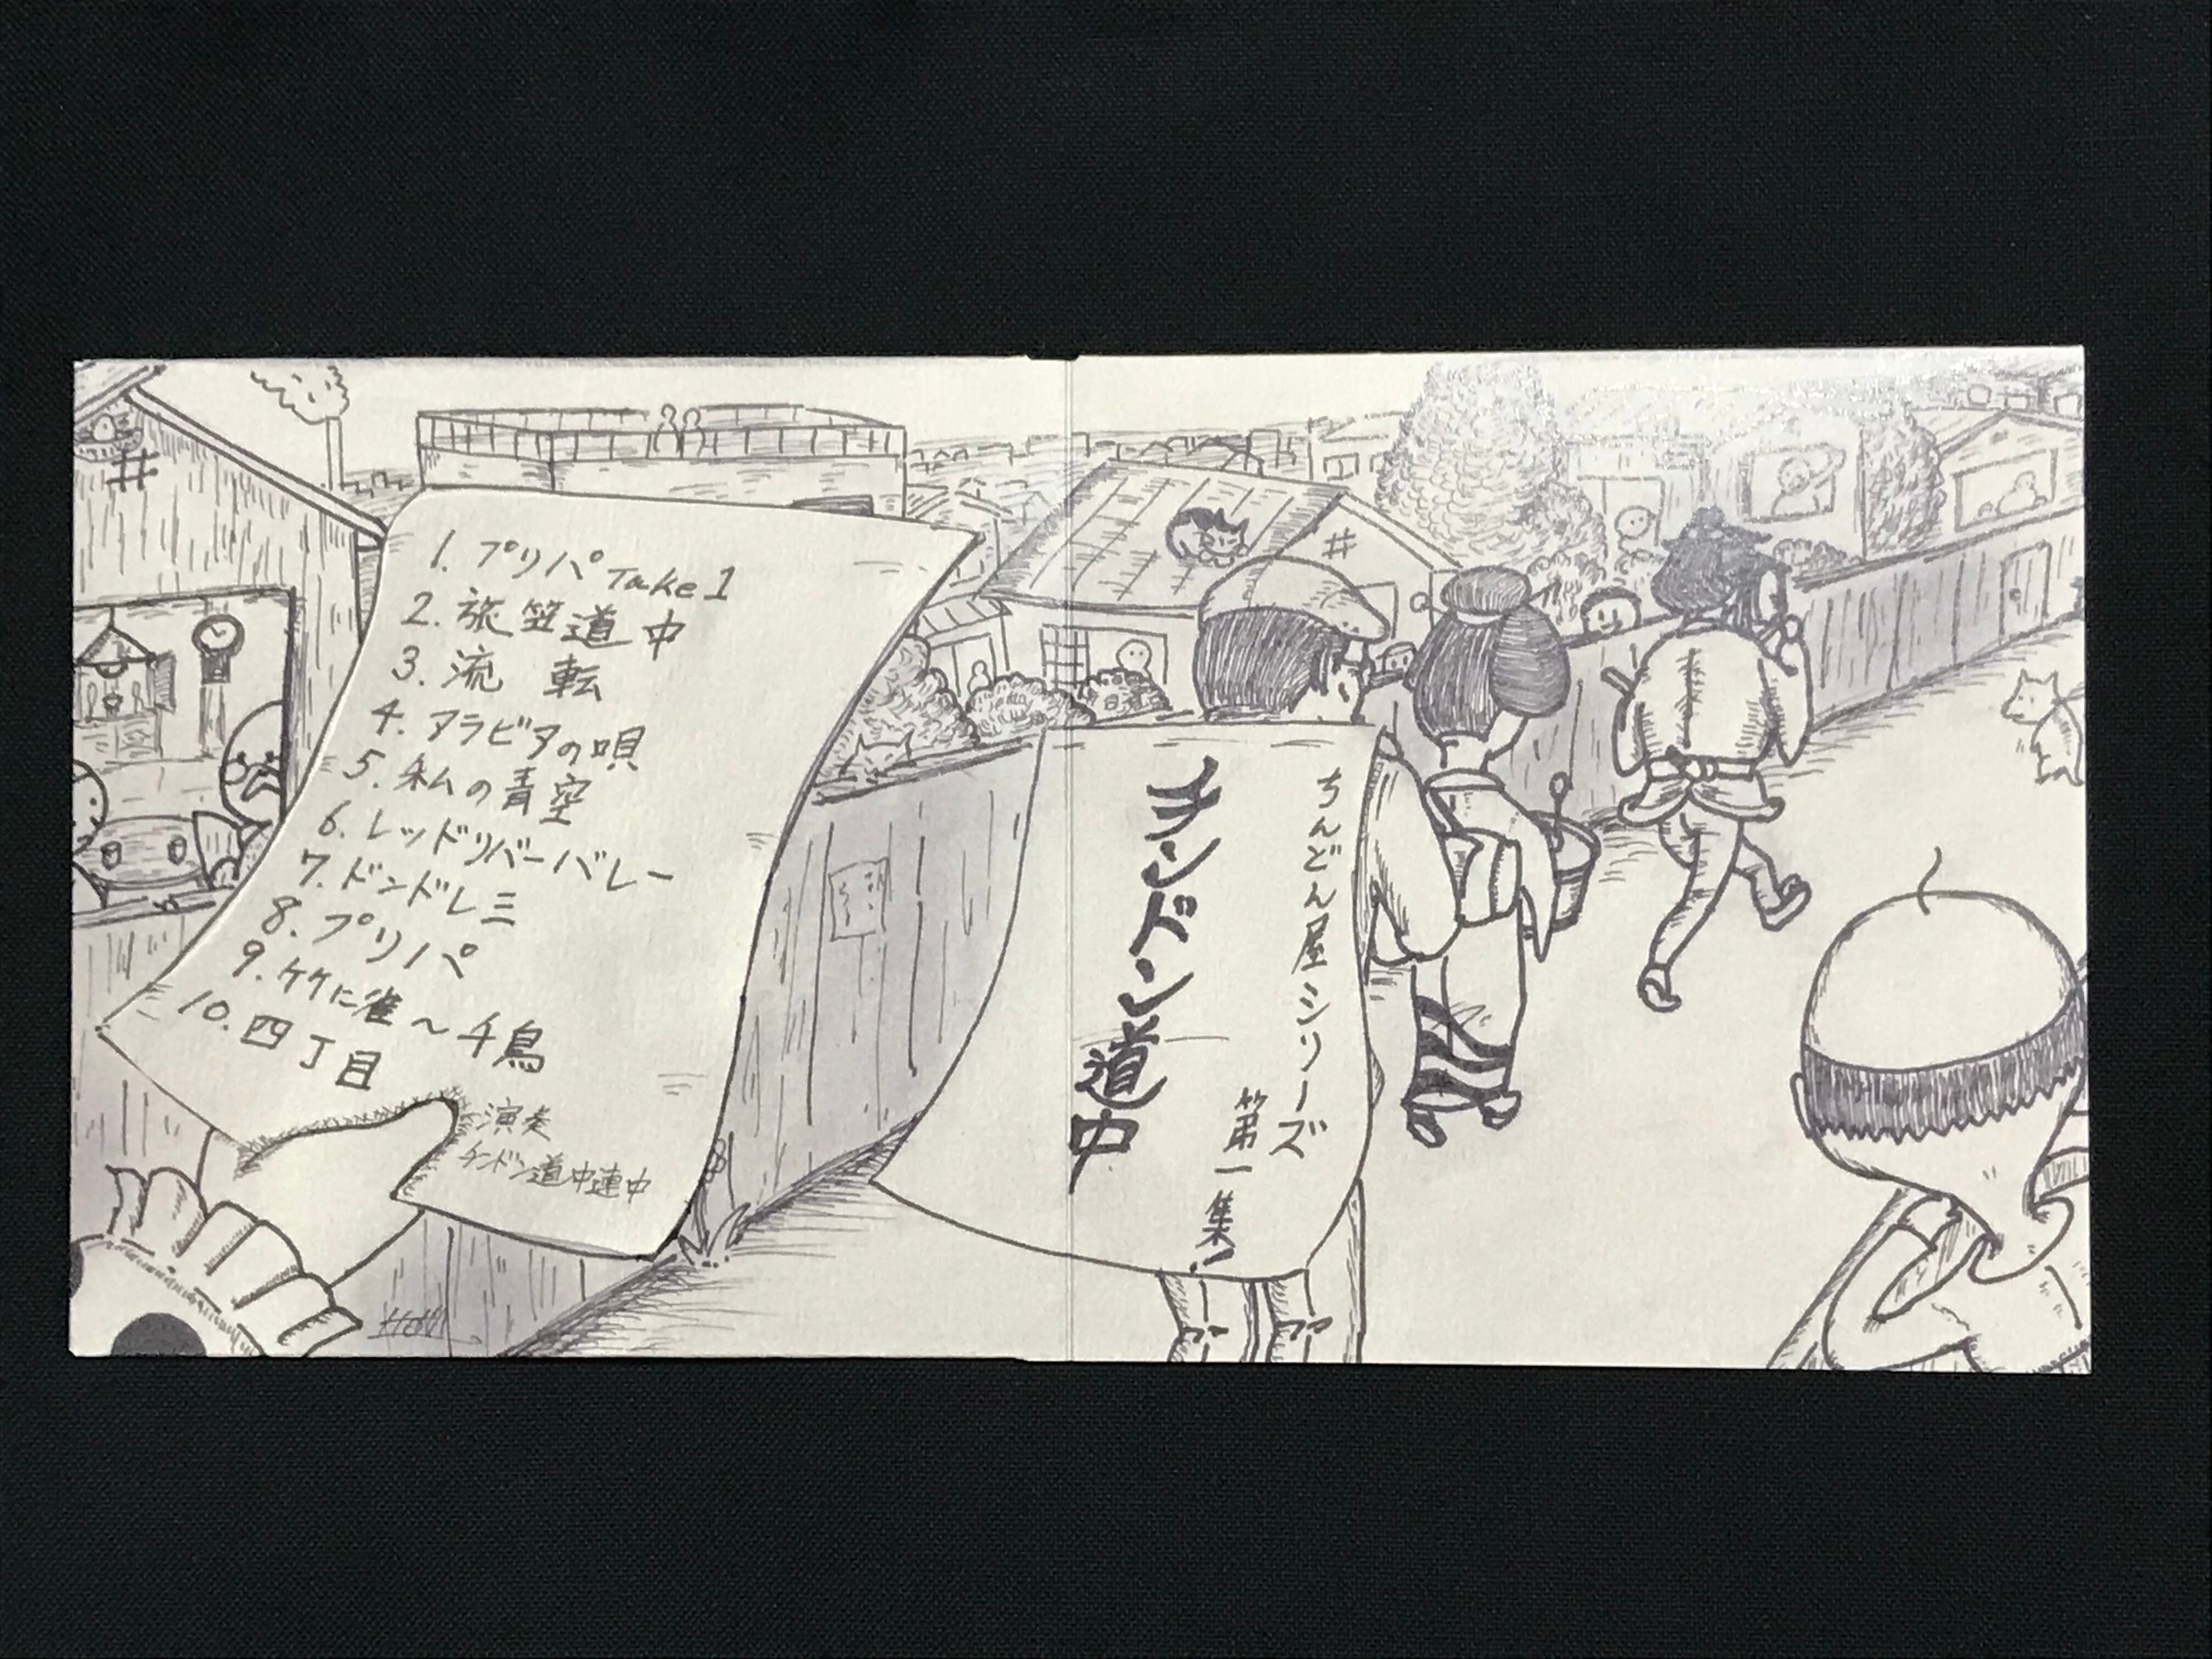 1. プリパ Take 1
2. 旅笠道中
3. 流転
4. アラビヤの唄
5. 私の青空
6. レッドリバーバレー
7. ドンドレミ
8. プリパ
9. 竹に雀～千鳥
10. 四丁目
演奏
チンドン道中連中
ちんどん屋シリーズ
第一集!
チンドン道中